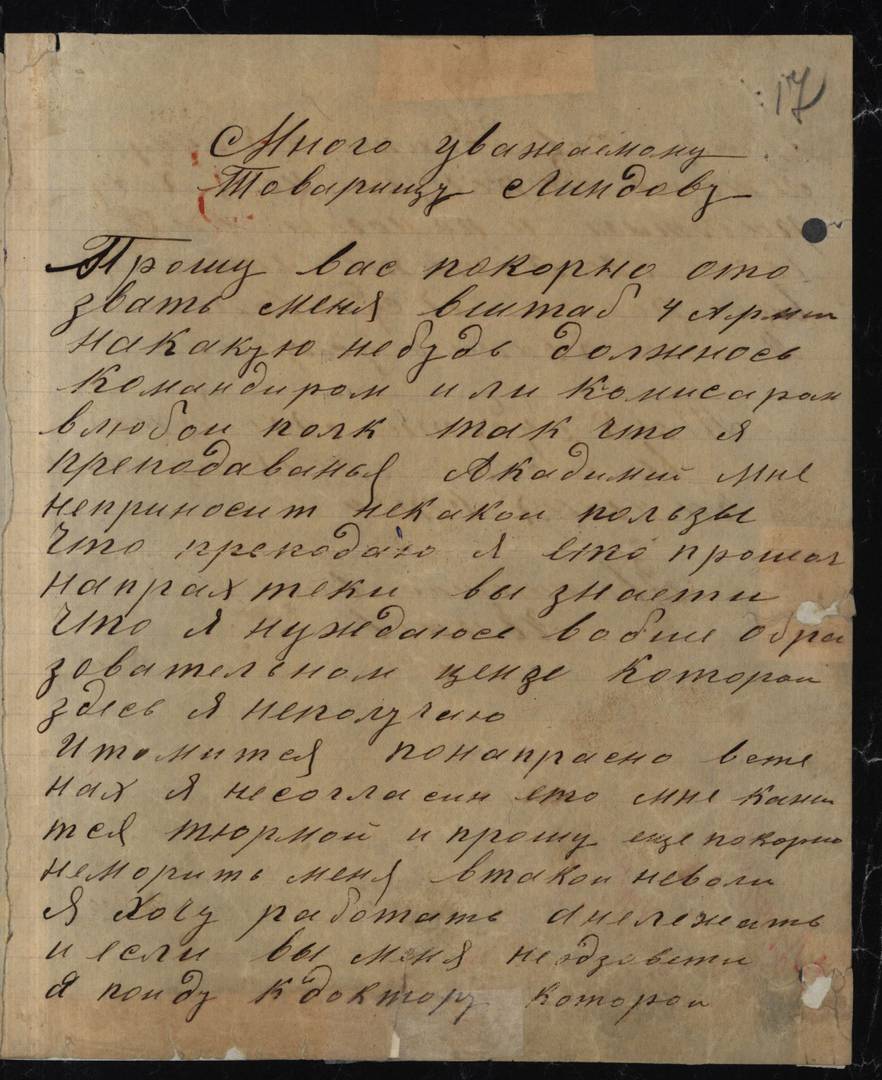 17
Много уважаемому
Товарищу Линдову
Прошу вас покорно ото
звать меня вштаб 4 Армии
накакую небудь должнось
командиром или комисаром
влюбои полк так что я
преподаванья Академий мне
неприносит некакои пользы
что преподаю я ето прошол
напрахтеки вы знаети
что я нуждаюсь вобше обра
зовательном цензе которои
здесь я неполучаю
Итомится понапрасно всте
нах я несогласин ето мне кажи
тся тюрмой и прошу еще покорно
неморить меня втакои неволи
я хочу работать анележать
и если вы меня
я поиду к доктору которои